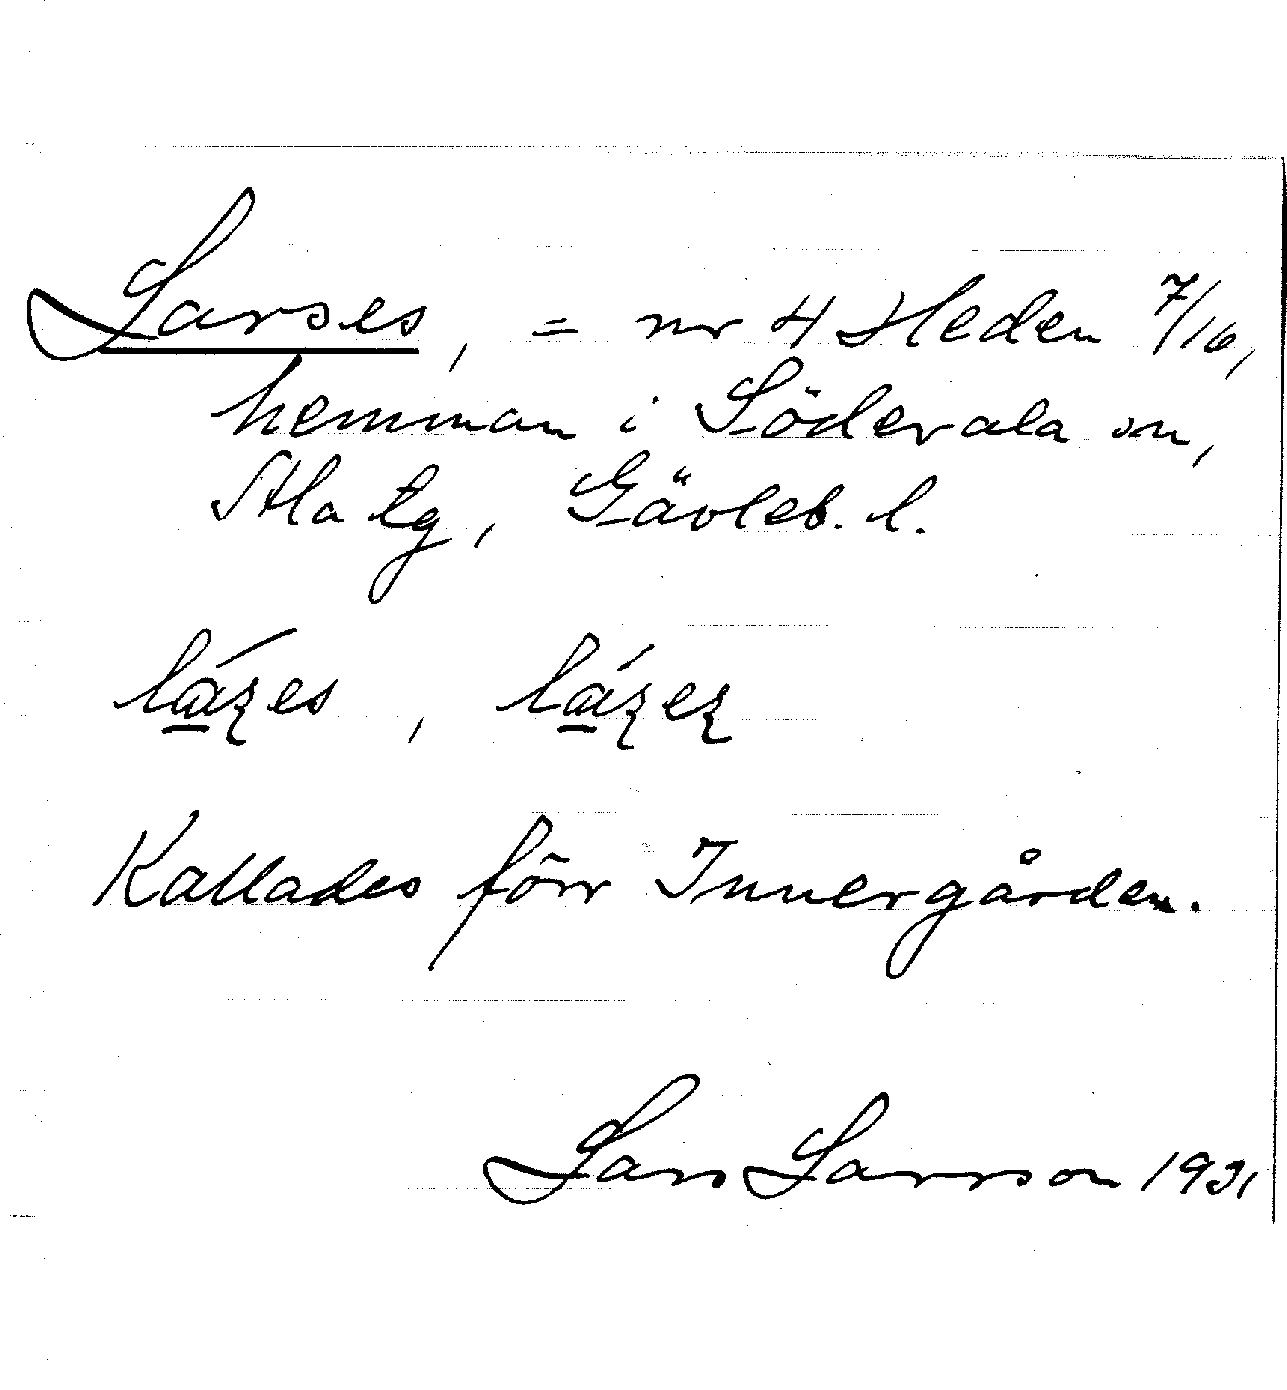 Larses, = nr 4 Heden 7/16,
hemman i Söderala sn,
Ala tg, Gävleb. l.
Kallades förr Innergården.
Lars Larsson 1931